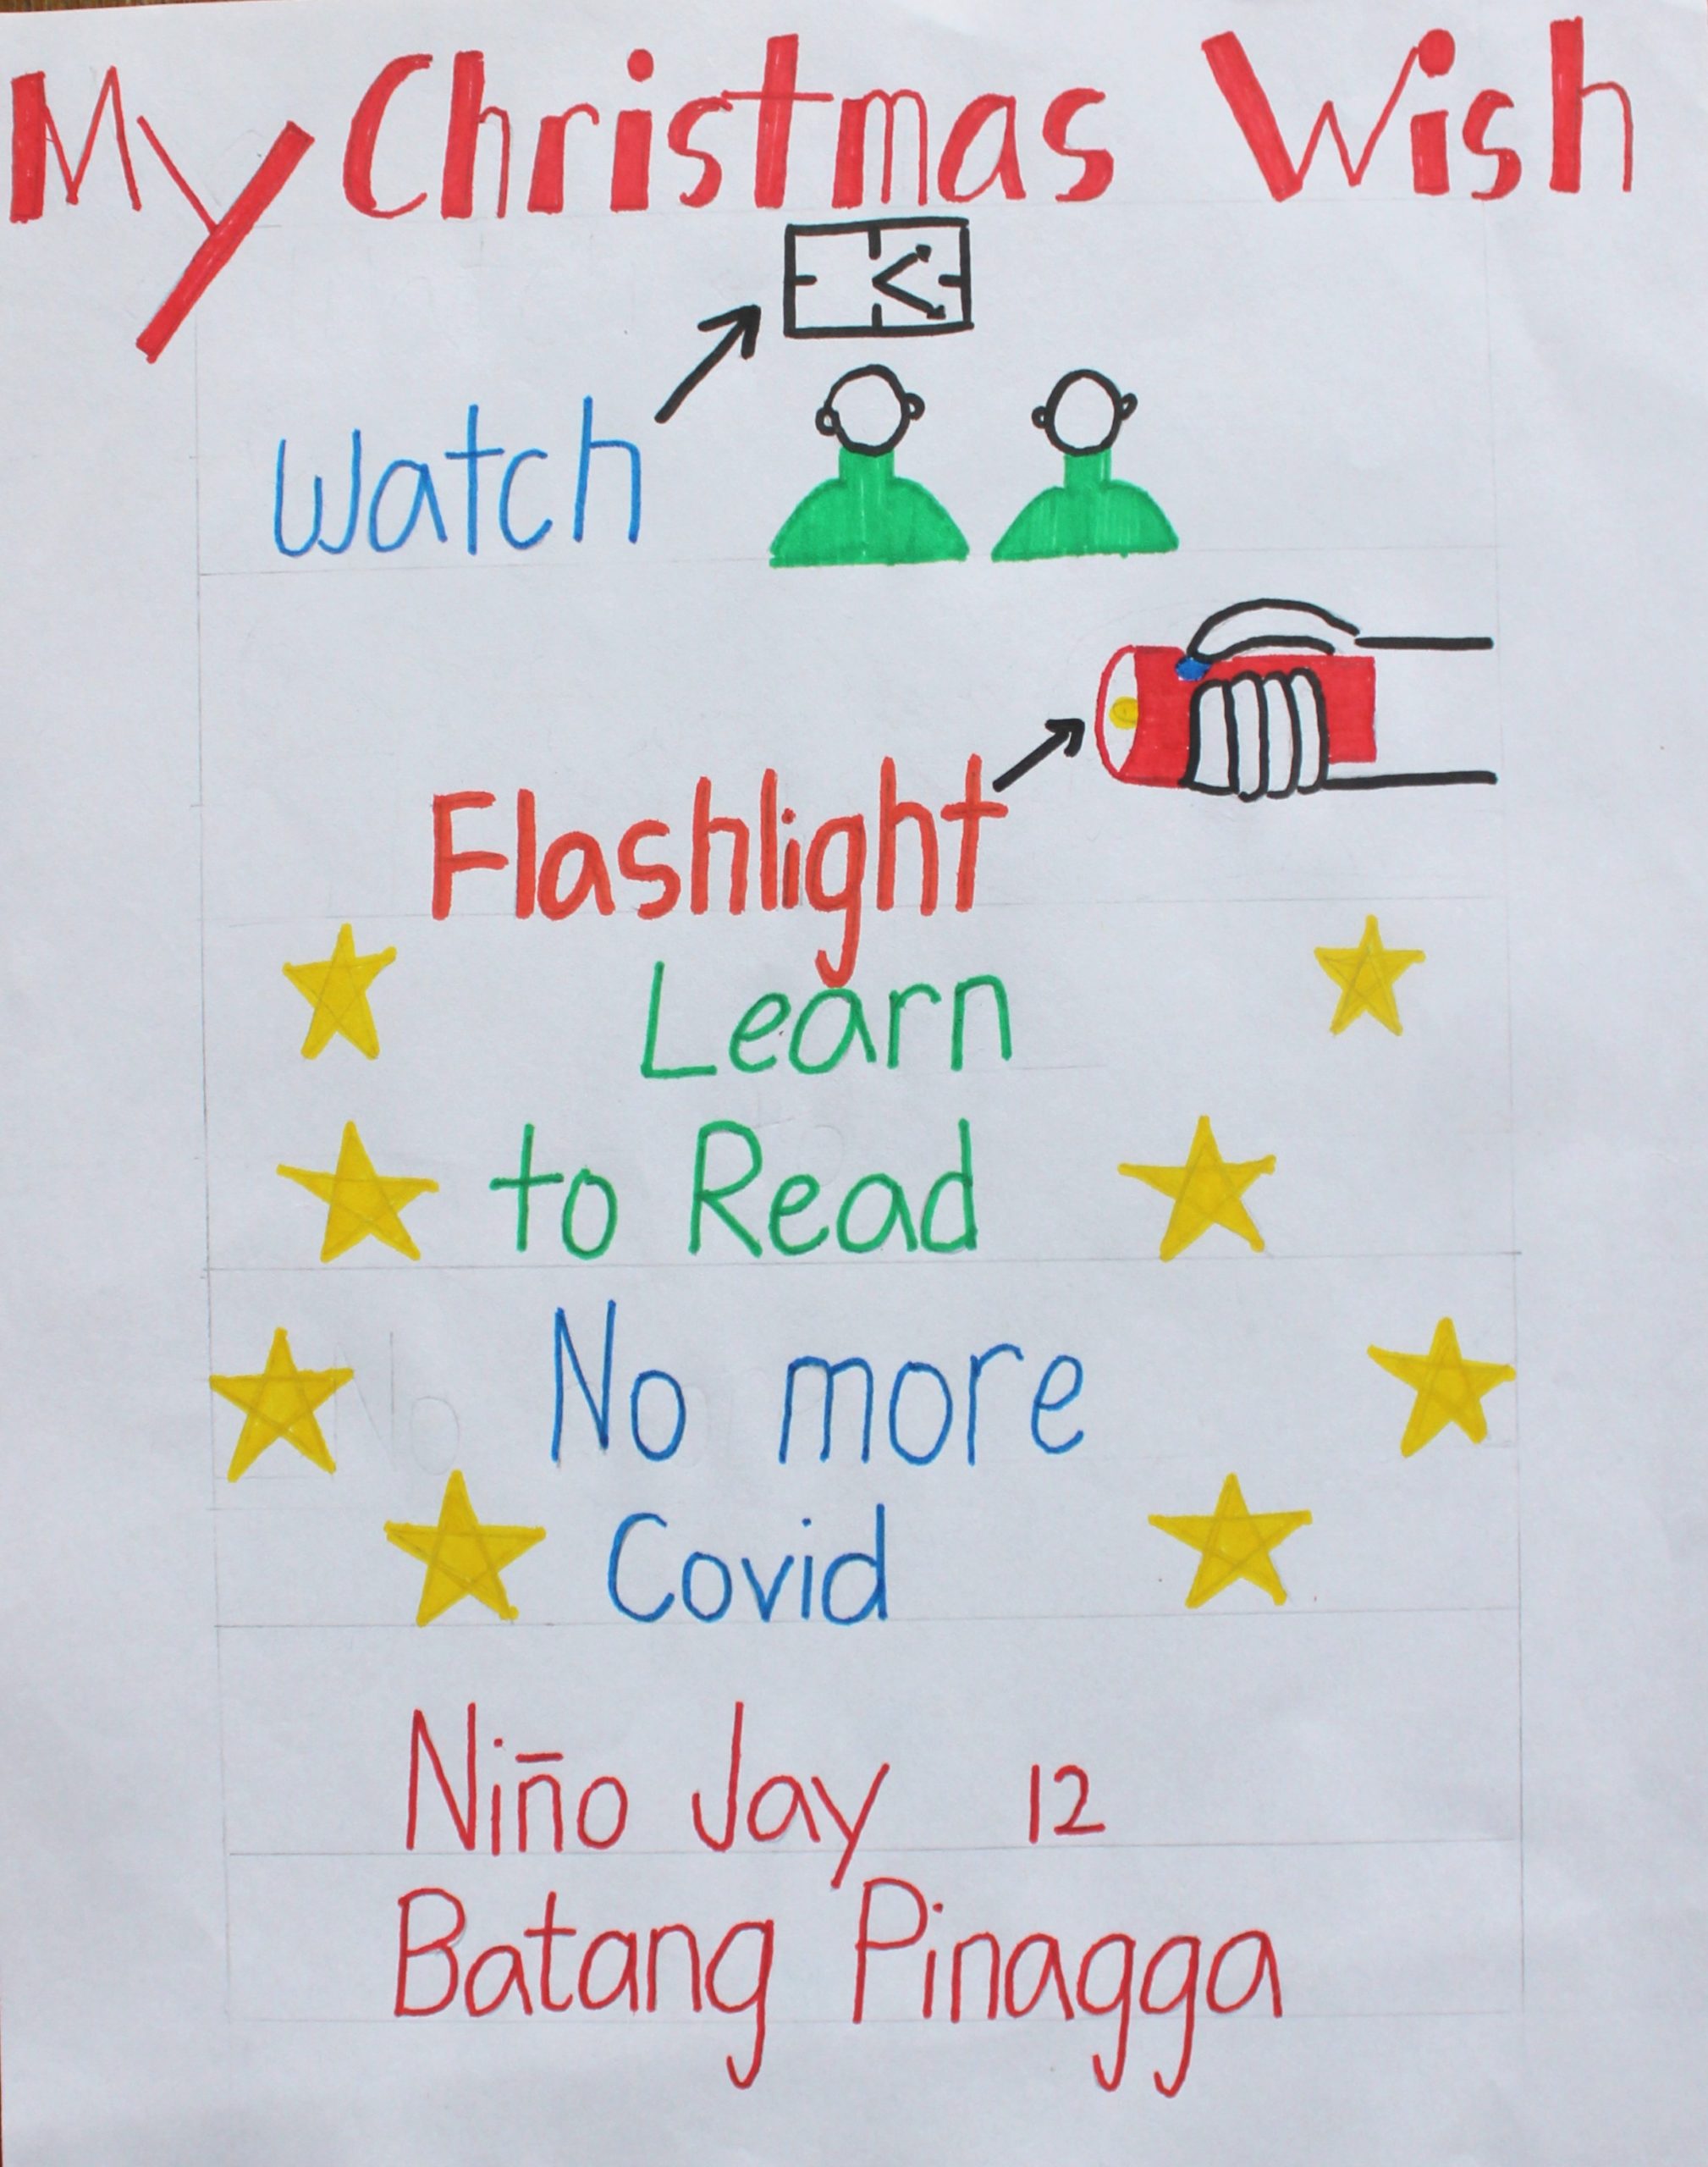 My Christmas Wish
Watch
Flashlight
Learn
to Read
No more
Covid
Niño Jay 12
Batang Pinagga